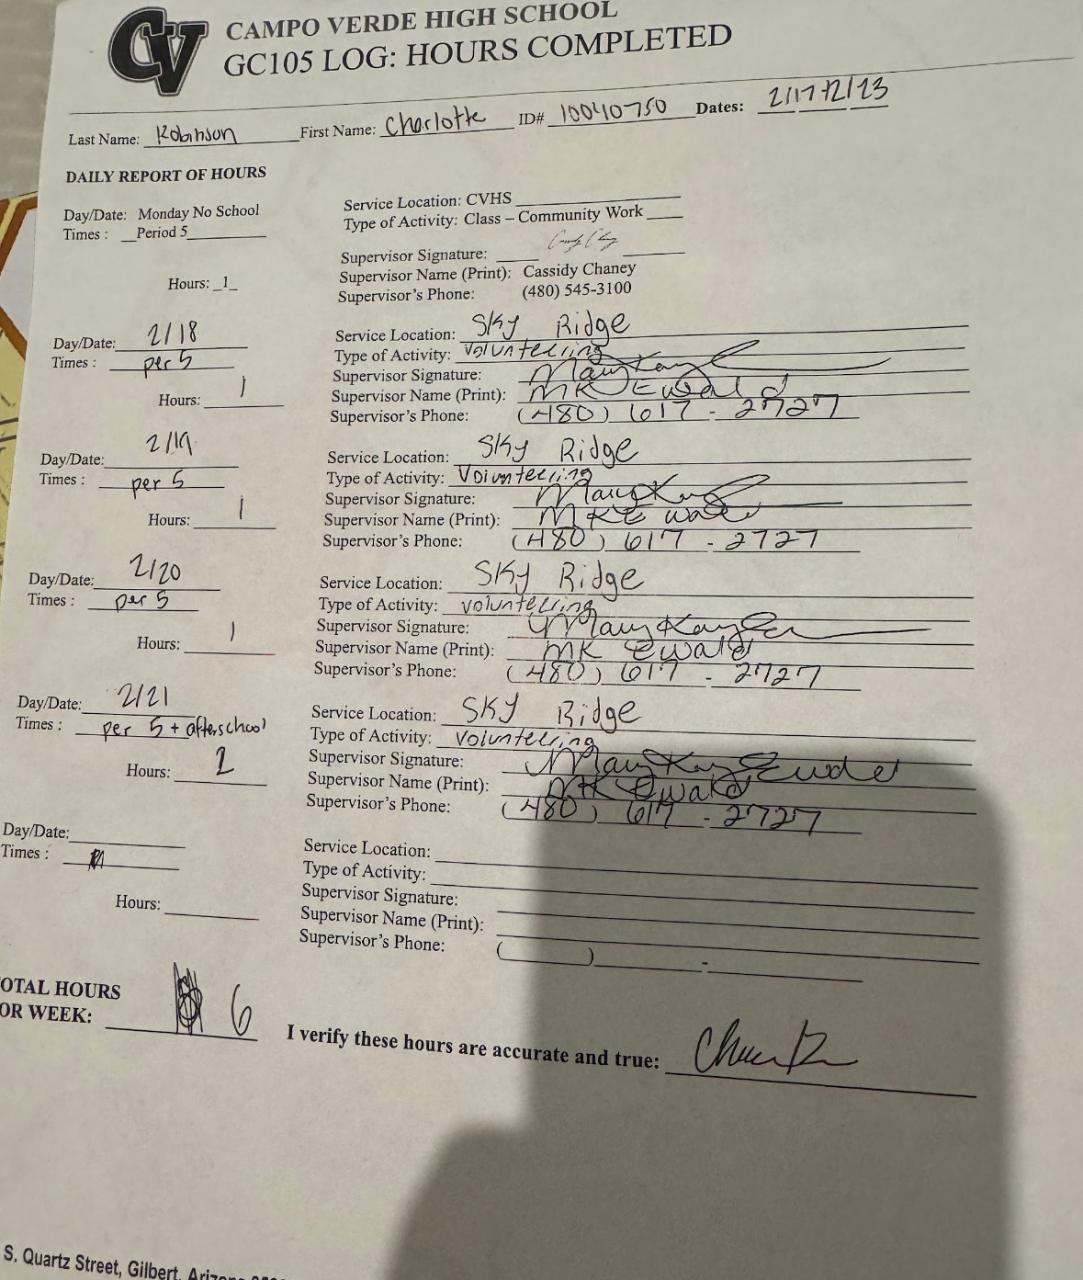 CV
CAMPO VERDE HIGH SCHOOL
GC105 LOG: HOURS COMPLETED
Last Name: Robinson First Name: Charlotte ID# 10040750 Dates: 2/17-2/23
DAILY REPORT OF HOURS
Day/Date: Monday No School
Times : Period 5
Hours: 1
Service Location: CVHS
Type of Activity: Class – Community Work
Supervisor Signature:
Supervisor Name (Print): Cassidy Chaney
Supervisor's Phone: (480) 545-3100
Day/Date: 2/18
Times : per 5
Hours: 1
Service Location: Sky Ridge
Type of Activity: Volunteering
Supervisor Signature: Mary Kay
Supervisor Name (Print): MK Ewald
Supervisor's Phone: (480) 617 - 2727
Day/Date: 2/19
Times : per 5
Hours: 1
Service Location: Sky Ridge
Type of Activity: Volunteering
Supervisor Signature: Mary Kay
Supervisor Name (Print): MK Ewald
Supervisor's Phone: (480) 617 - 2727
Day/Date: 2/20
Times : per 5
Hours: 1
Service Location: Sky Ridge
Type of Activity: volunteering
Supervisor Signature: Mary Kay
Supervisor Name (Print): MK Ewald
Supervisor's Phone: (480) 617 - 2727
Day/Date: 2/21
Times : per 5 + afterschool
Hours: 2
Service Location: Sky Ridge
Type of Activity: volunteering
Supervisor Signature: Mary Kay
Supervisor Name (Print): MK Ewald
Supervisor's Phone: (480) 617 - 2727
Day/Date:
Times :
Hours:
Service Location:
Type of Activity:
Supervisor Signature:
Supervisor Name (Print):
Supervisor's Phone: ( ) -
OTAL HOURS
OR WEEK: 6
I verify these hours are accurate and true:
S. Quartz Street, Gilbert,